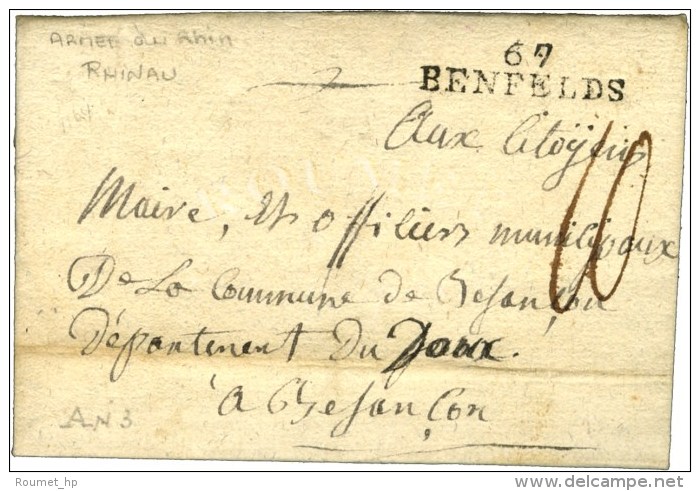 ARMEE du Rhin
RHINAU
67
BENFELDS
Aux Citoÿens
10
Maire, et officiers municipaux
De La Commune de Besançon
Département Du Doux.
à Besançon
AN 3
Roumet_hp
delcampe.net